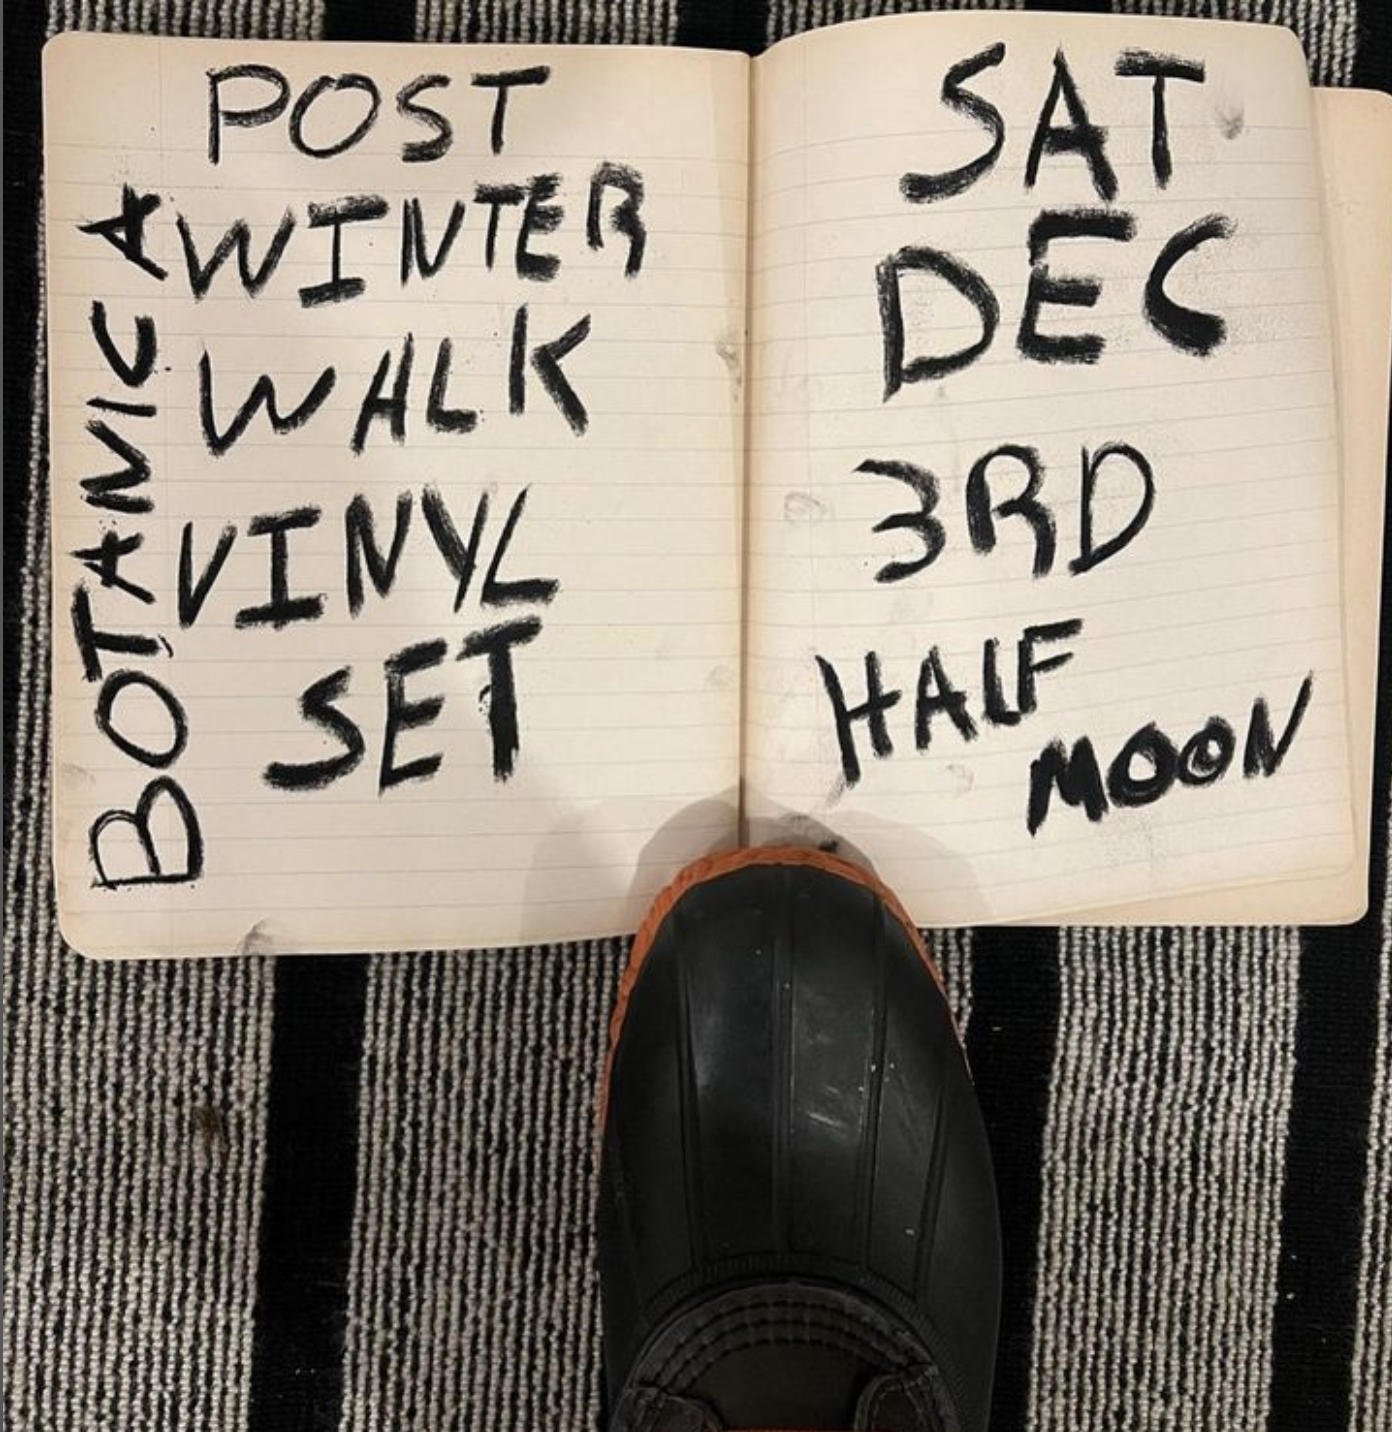 POST
WINTER
WALK
VINYL
SET
BOTANICA
SAT
DEC
3RD
HALF
MOON